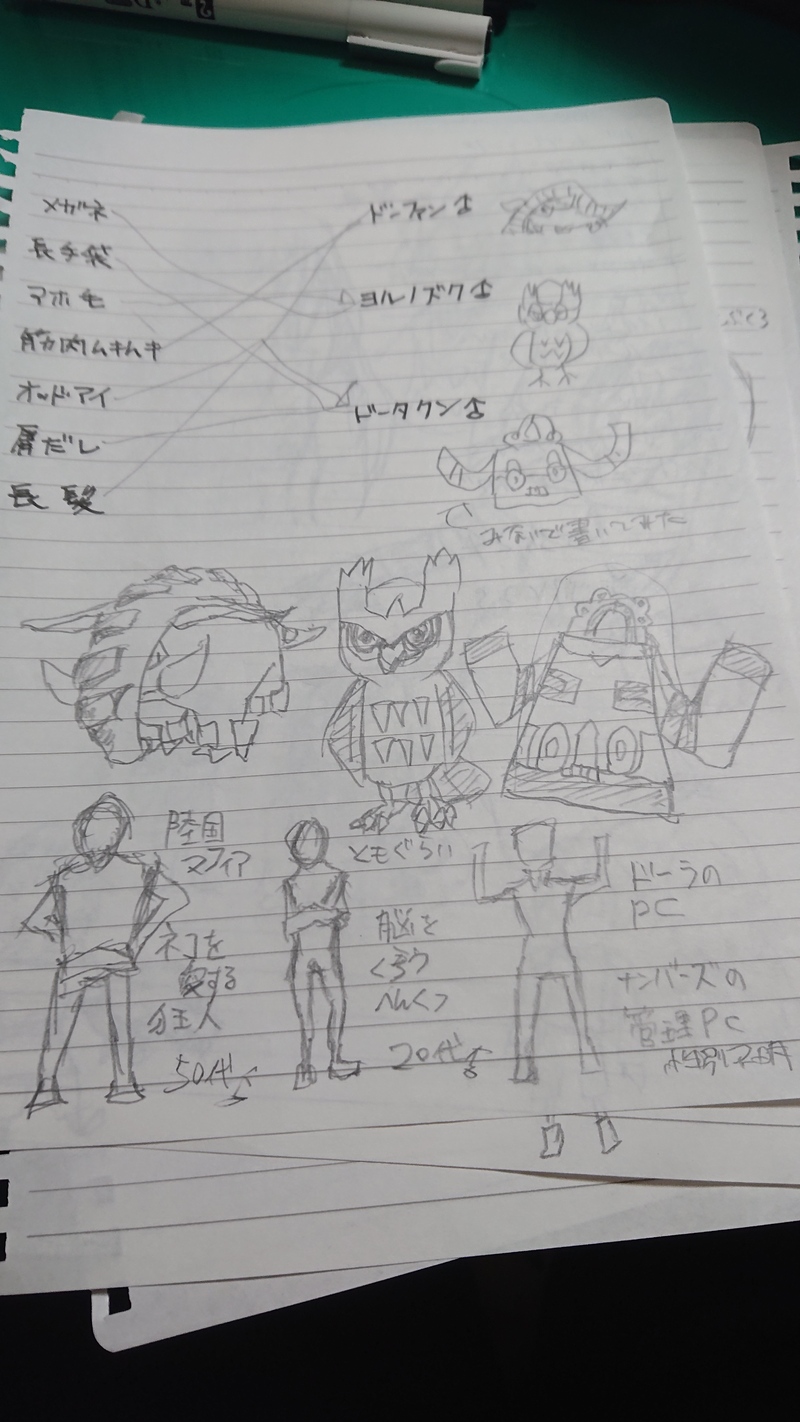 メガネ
長手袋
アホ毛
筋肉ムキムキ
オッドアイ
肩だし
長髪
ドンファン♂
ヨルノズク♂
ドータクン
で
みないで書いてみた
陸国
マフィア
ネコを
愛する
狂人
50代♂
ともぐらい
脳を
へんくつ
20代♂
ドーラの
PC
ナンバーズの
管理PC
性別不明